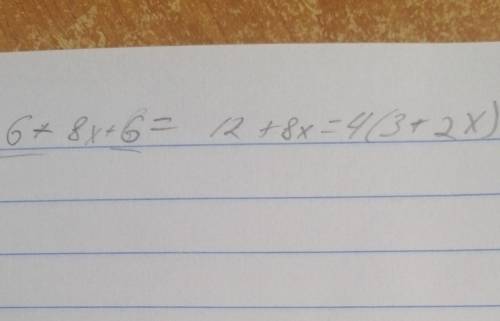 6 + 8x + 6 = 12 + 8x = 4(3 + 2x)